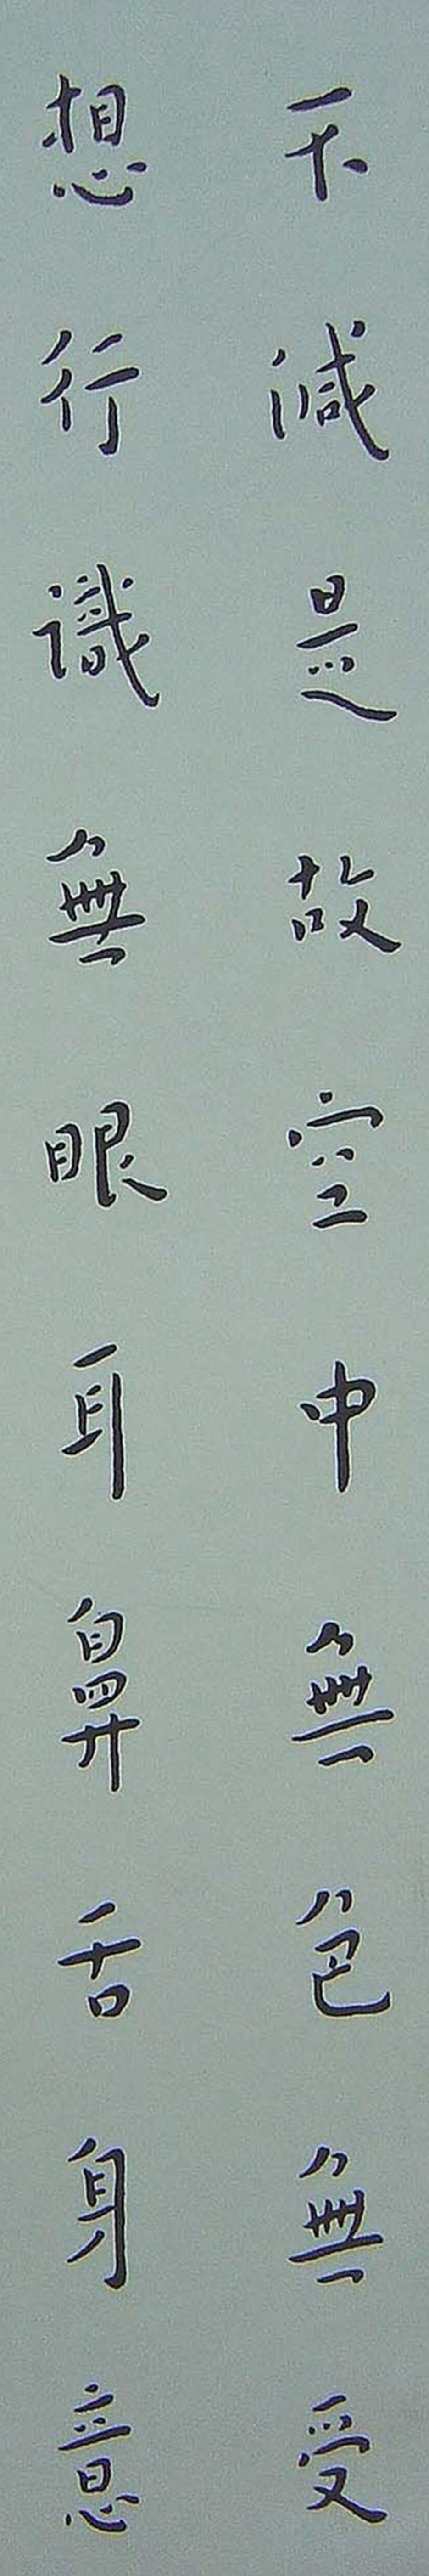 不減是故空中無色無受
想行識無眼耳鼻舌身意